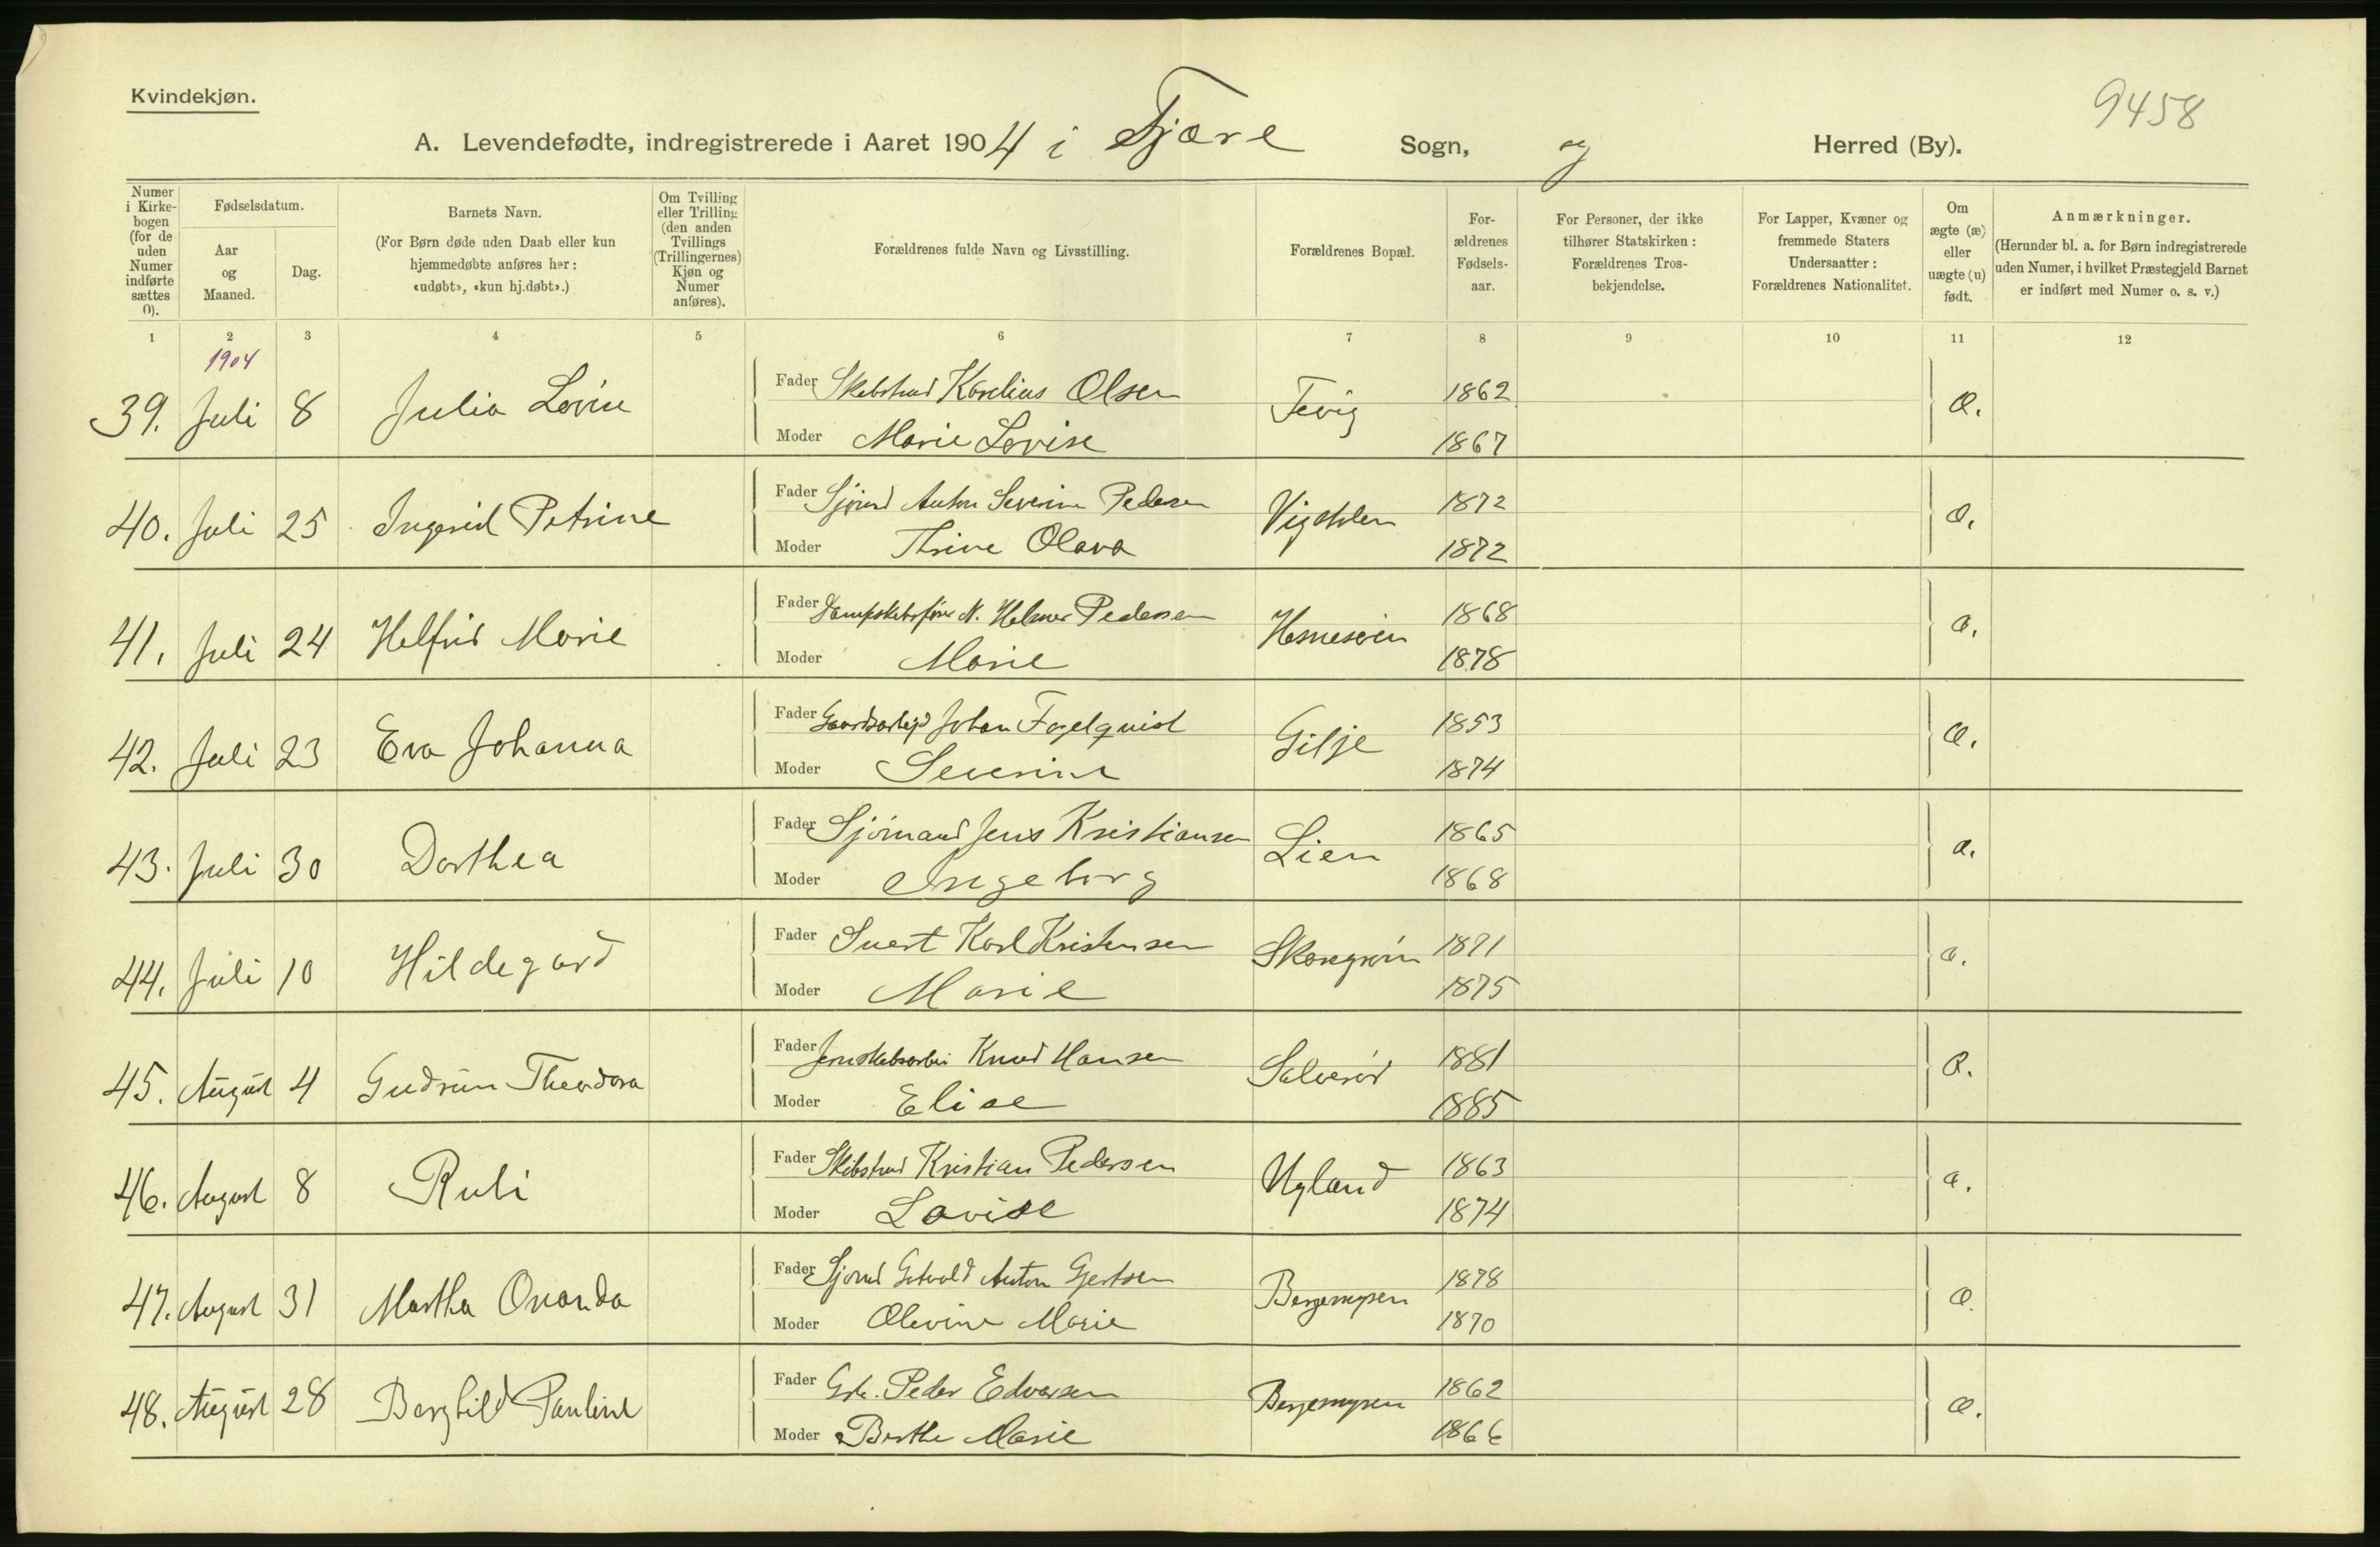 Kvindekjøn.
9458
A. Levendefødte, indregistrerede i Aaret 1904 i Fjære Sogn, og Herred (By).
Numer i Kirkebogen (for de uden Numer indførte sættes 0).
Fødselsdatum.
Aar og Maaned.
Dag.
Barnets Navn.
(For Børn døde uden Daab eller kun hjemmedøbte anføres her: «udøbt», «kun hj.døbt».)
Om Tvilling eller Trilling (den anden Tvillings (Trillingernes) Kjøn og Numer anføres).
Forældrenes fulde Navn og Livsstilling.
Forældrenes Bopæl.
Forældrenes Fødselsaar.
For Personer, der ikke tilhører Statskirken: Forældrenes Trosbekjendelse.
For Lapper, Kvæner og fremmede Staters Undersaatter: Forældrenes Nationalitet.
Om ægte (æ) eller uægte (u) født.
Anmærkninger.
(Herunder bl. a. for Børn indregistrerede uden Numer, i hvilket Præstegjeld Barnet er indført med Numer o. s. v.)
1 2 3 4 5 6 7 8 9 10 11 12
1904
39. Juli 8 Julia Lovise Fader Skibstmd Karelius Olsen Fevig 1862 æ.
Moder Marie Lovise 1867
40. Juli 25 Ingerid Petrine Fader Sjømd Anton Severin Pedersen 1872 æ.
Moder Thrine Olava 1872
41. Juli 24 Helfrid Marie Fader Dampskibsfører N. Helmer Pedersen Hesnesøen 1868 æ.
Moder Marie 1878
42. Juli 23 Eva Johanna Fader Johan Fogelquist Gilje 1853 æ.
Moder Severine 1874
43. Juli 30 Dorthea Fader Sjømand Jens Kristiansen Lien 1865 æ.
Moder Ingeborg 1868
44. Juli 10 Hildegard Fader Karl Kristensen 1871 æ.
Moder Marie 1875
45. August 4 Gudrun Theodora Fader Jernskibsarbei Knud Hansen 1881 æ.
Moder Elise 1885
46. August 8 Ruli Fader Skibstmd Kristian Pedersen Ugland 1863 æ.
Moder Lovise 1874
47. August 31 Martha Ovanda Fader Sjømd Gotvald Anton Gjertsen Bergemyren 1878 æ.
Moder Olevine Marie 1870
48. August 28 Borghild Pauline Fader Grb. Peder Edvarsen Bergemyren 1862 æ.
Moder Berthe Marie 1866